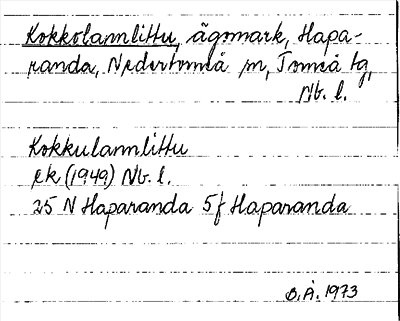 Kokkolannlittu, ägomark, Hapa-
randa, Nedertorneå sn, Torneå tg,
Nb. l.
Kokkulannlittu
ek (1949) Nb. l.
25 N Haparanda 5f Haparanda
B.Å. 1973